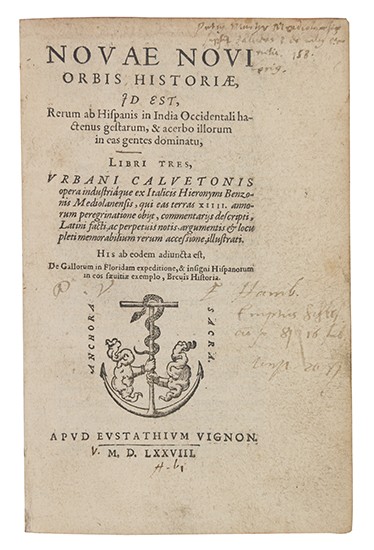 NOVAE NOVI
ORBIS HISTORIÆ,
ID EST,
Rerum ab Hiſpanis in India Occidentali ha-
ctenus geſtarum, & acerbo illorum
in eas gentes dominatu,
LIBRI TRES,
VRBANI CALVETONIS
opera induſtriáque ex Italicis Hieronymi Benzo-
nis Mediolanenſis, qui eas terras XIIII. anno-
rum peregrinatione obijt, commentarijs deſcripti,
Latini facti, ac perpetuis notis, argumentis & locu
pleti memorabilium rerum acceſsione, illuſtrati.
His ab eodem adiuncta eſt,
De Gallorum in Floridam expeditione, & inſigni Hiſpanorum
in eos ſæuitiæ exemplo, Breuis Hiſtoria.
P V F Hamb.
ANCHORA SACRA.
APVD EVSTATHIVM VIGNON.
M. D. LXXVIII.